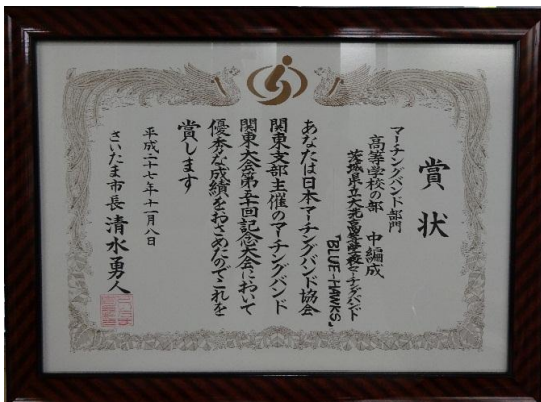 賞状
マーチングバンド部門
高等学校の部 中編成
茨城県立大洗高等学校マーチングバンド
「BLUE-HAWKS」
あなたは日本マーチングバンド協会
関東支部主催のマーチングバンド
関東大会第五十回記念大会において
優秀な成績をおさめたのでこれを
賞します
平成二十七年十一月八日
さいたま市長 清水勇人